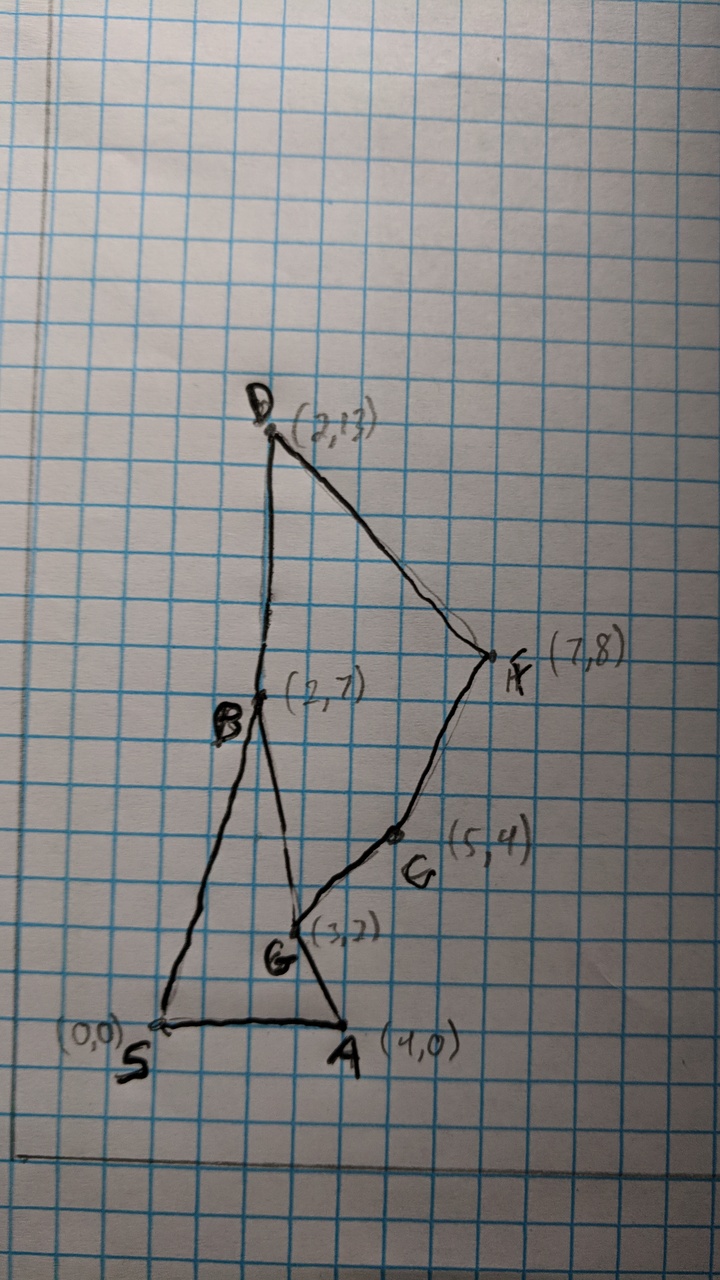 D (2,13)
(7,8)
B (2,7)
(5,4)
G
G (3,2)
(0,0) S
A (4,0)